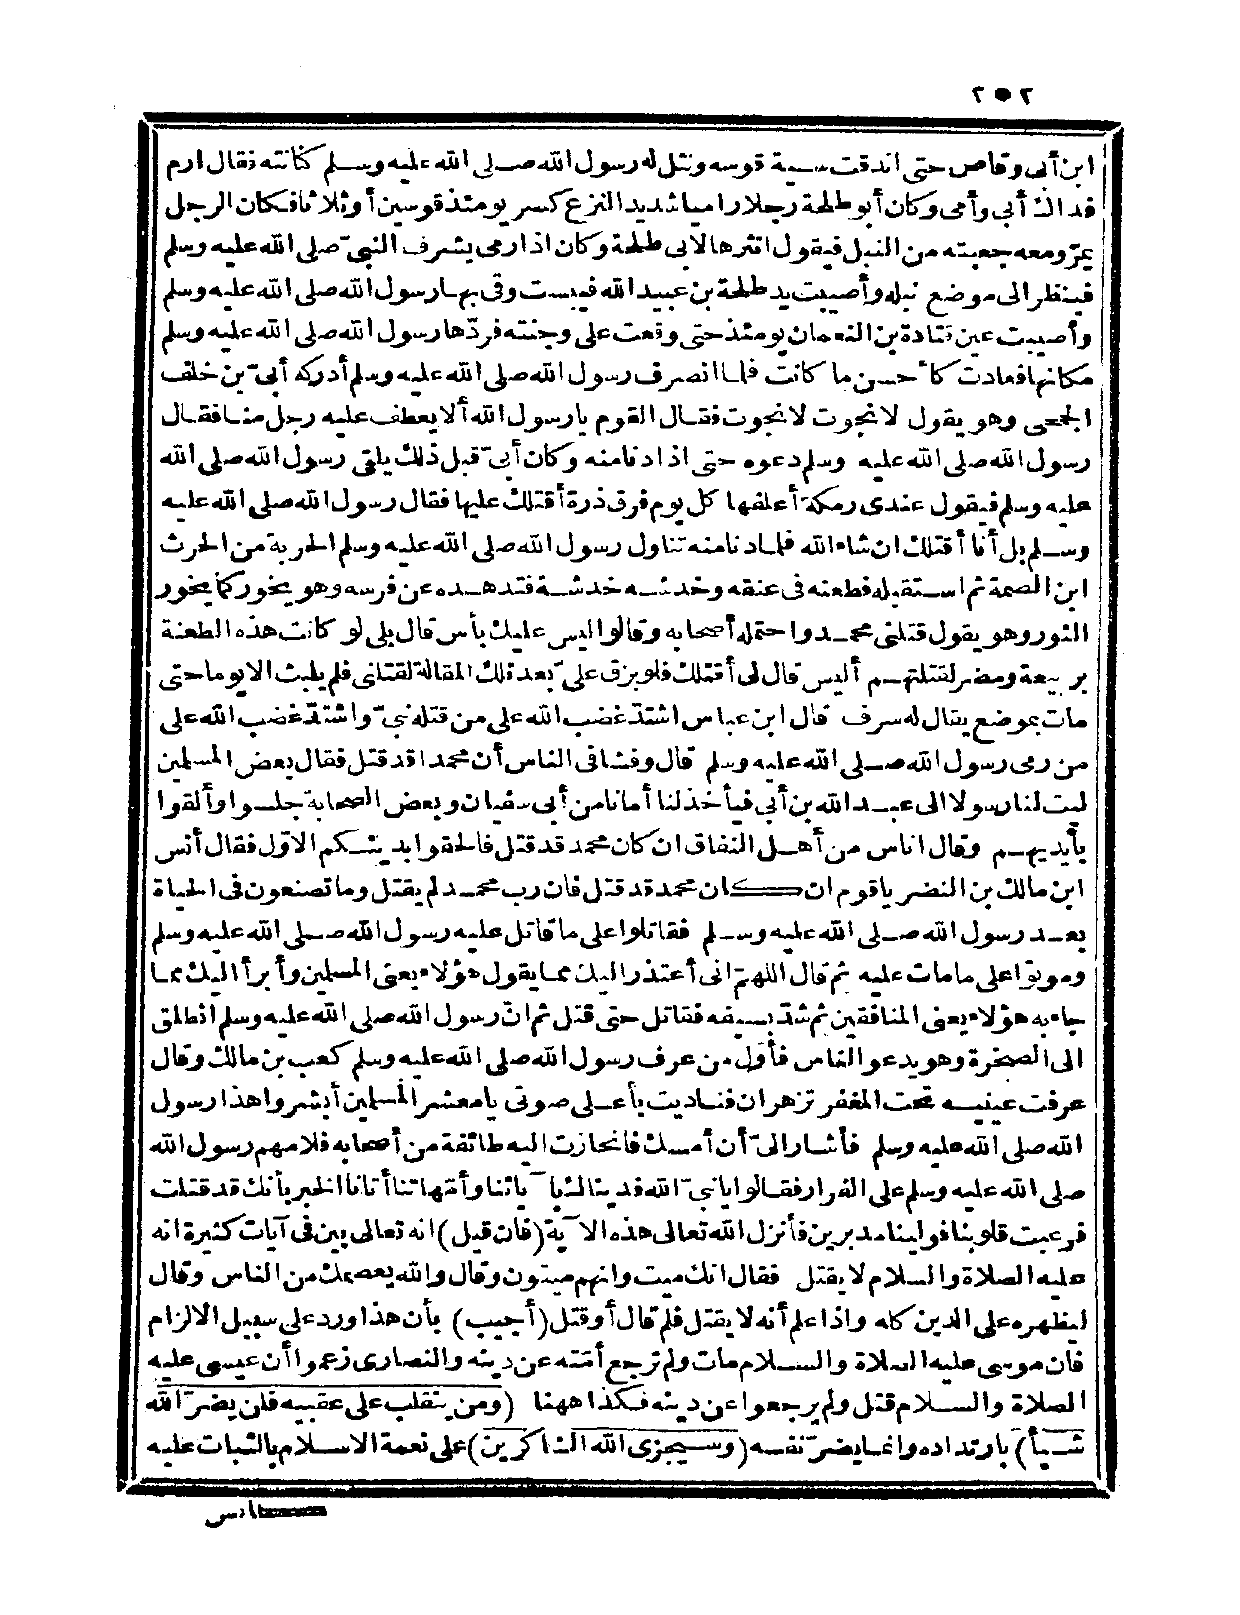 ٢٥٢
ابن أبي وقاص حتى اندقت سية قوسه ونثل له رسول الله صلى الله عليه وسلم كنانته فقال ارم
فداك أبي وأمي وكان أبو طلحة رجلا راميا شديد النزع كسر يومئذ قوسين أو ثلاثا فكان الرجل
يمرّ ومعه جعبته من النبل فيقول انثرها لابى طلحة وكان اذا رمى يشرف النبيّ صلى الله عليه وسلم
فينظر الى موضع نبله وأصيبت يد طلحة بن عبيد الله فيبست وقى بها رسول الله صلى الله عليه وسلم
وأصيبت عين قتادة بن النعمان يومئذ حتى وقعت على وجنته فردّها رسول الله صلى الله عليه وسلم
مكانها فعادت كأحسن ما كانت فلما انصرف رسول الله صلى الله عليه وسلم أدركه أبيّ بن خلف
الجمحي وهو يقول لا نجوت لا نجوت فقال القوم يا رسول الله ألا يعطف عليه رجل منا فقال
رسول الله صلى الله عليه وسلم دعوه حتى اذا دنا منه وكان أبيّ قبل ذلك يلقى رسول الله صلى الله
عليه وسلم فيقول عندى رمكة أعلفها كل يوم فرق ذرة أقتلك عليها فقال رسول الله صلى الله عليه
وسلم بل أنا أقتلك ان شاء الله فلما دنا منه تناول رسول الله صلى الله عليه وسلم الحربة من الحرث
ابن الصمة ثم استقبله فطعنه في عنقه وخدشه خدشة فتدهده عن فرسه وهو يخور كما يخور
الثور وهو يقول قتلنى محمد واحتمله أصحابه وقالوا ليس عليك بأس قال بلى لو كانت هذه الطعنة
بربيعة ومضر لقتلتهم أليس قال لى أقتلك فلو بزق علىّ بعد تلك المقالة لقتلنى فلم يلبث الا يوما حتى
مات بموضع يقال له سرف قال ابن عباس اشتدّ غضب الله على من قتله نبيّ واشتدّ غضب الله على
من رمى رسول الله صلى الله عليه وسلم قال وفشا فى الناس أن محمدا قد قتل فقال بعض المسلمين
ليت لنا رسولا الى عبد الله بن أبي فيأخذ لنا أمانا من أبى سفيان وبعض الصحابة جلسوا وألقوا
بأيديهم وقال اناس من أهل النفاق ان كان محمد قد قتل فالحقوا بدينكم الاوّل فقال أنس
ابن مالك بن النضر يا قوم ان كان محمد قد قتل فان رب محمد لم يقتل وما تصنعون فى الحياة
بعد رسول الله صلى الله عليه وسلم فقاتلوا على ما قاتل عليه رسول الله صلى الله عليه وسلم
وموتوا على ما مات عليه ثم قال اللهمّ انى أعتذر اليك مما يقول هؤلاء يعنى المسلمين وأبرأ اليك مما
جاء به هؤلاء يعنى المنافقين ثم شدّ بسيفه فقاتل حتى قتل ثم انّ رسول الله صلى الله عليه وسلم انطلق
الى الصخرة وهو يدعو الناس فأوّل من عرف رسول الله صلى الله عليه وسلم كعب بن مالك وقال
عرفت عينيه تحت المغفر تزهران فناديت بأعلى صوتى يا معشر المسلمين أبشروا هذا رسول
الله صلى الله عليه وسلم فأشار الىّ أن أمسك فانحازت اليه طائفة من أصحابه فلامهم رسول الله
صلى الله عليه وسلم على الفرار فقالوا يا نبيّ الله فديناك بآبائنا وأمّهاتنا أتانا الخبر بأنك قد قتلت
فرعبت قلوبنا فولينا مدبرين فأنزل الله تعالى هذه الآية (فان قيل) انه تعالى بين فى آيات كثيرة انه
عليه الصلاة والسلام لا يقتل فقال انك ميت وانهم ميتون وقال والله يعصمك من الناس وقال
ليظهره على الدين كله واذا علم أنه لا يقتل فلم قال أو قتل (أجيب) بأن هذا ورد على سبيل الالزام
فان موسى عليه الصلاة والسلام مات ولم ترجع أمّته عن دينه والنصارى زعموا أن عيسى عليه
الصلاة والسلام قتل ولم يرجعوا عن دينه فكذا ههنا (ومن ينقلب على عقبيه فلن يضرّ الله
شيأ) بارتداده وانما يضرّ نفسه (وسيجزى الله الشاكرين) على نعمة الاسلام بالثبات عليه